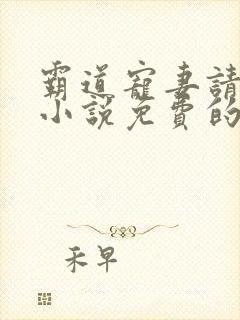 霸道寵妻請
小說免費的
禾早